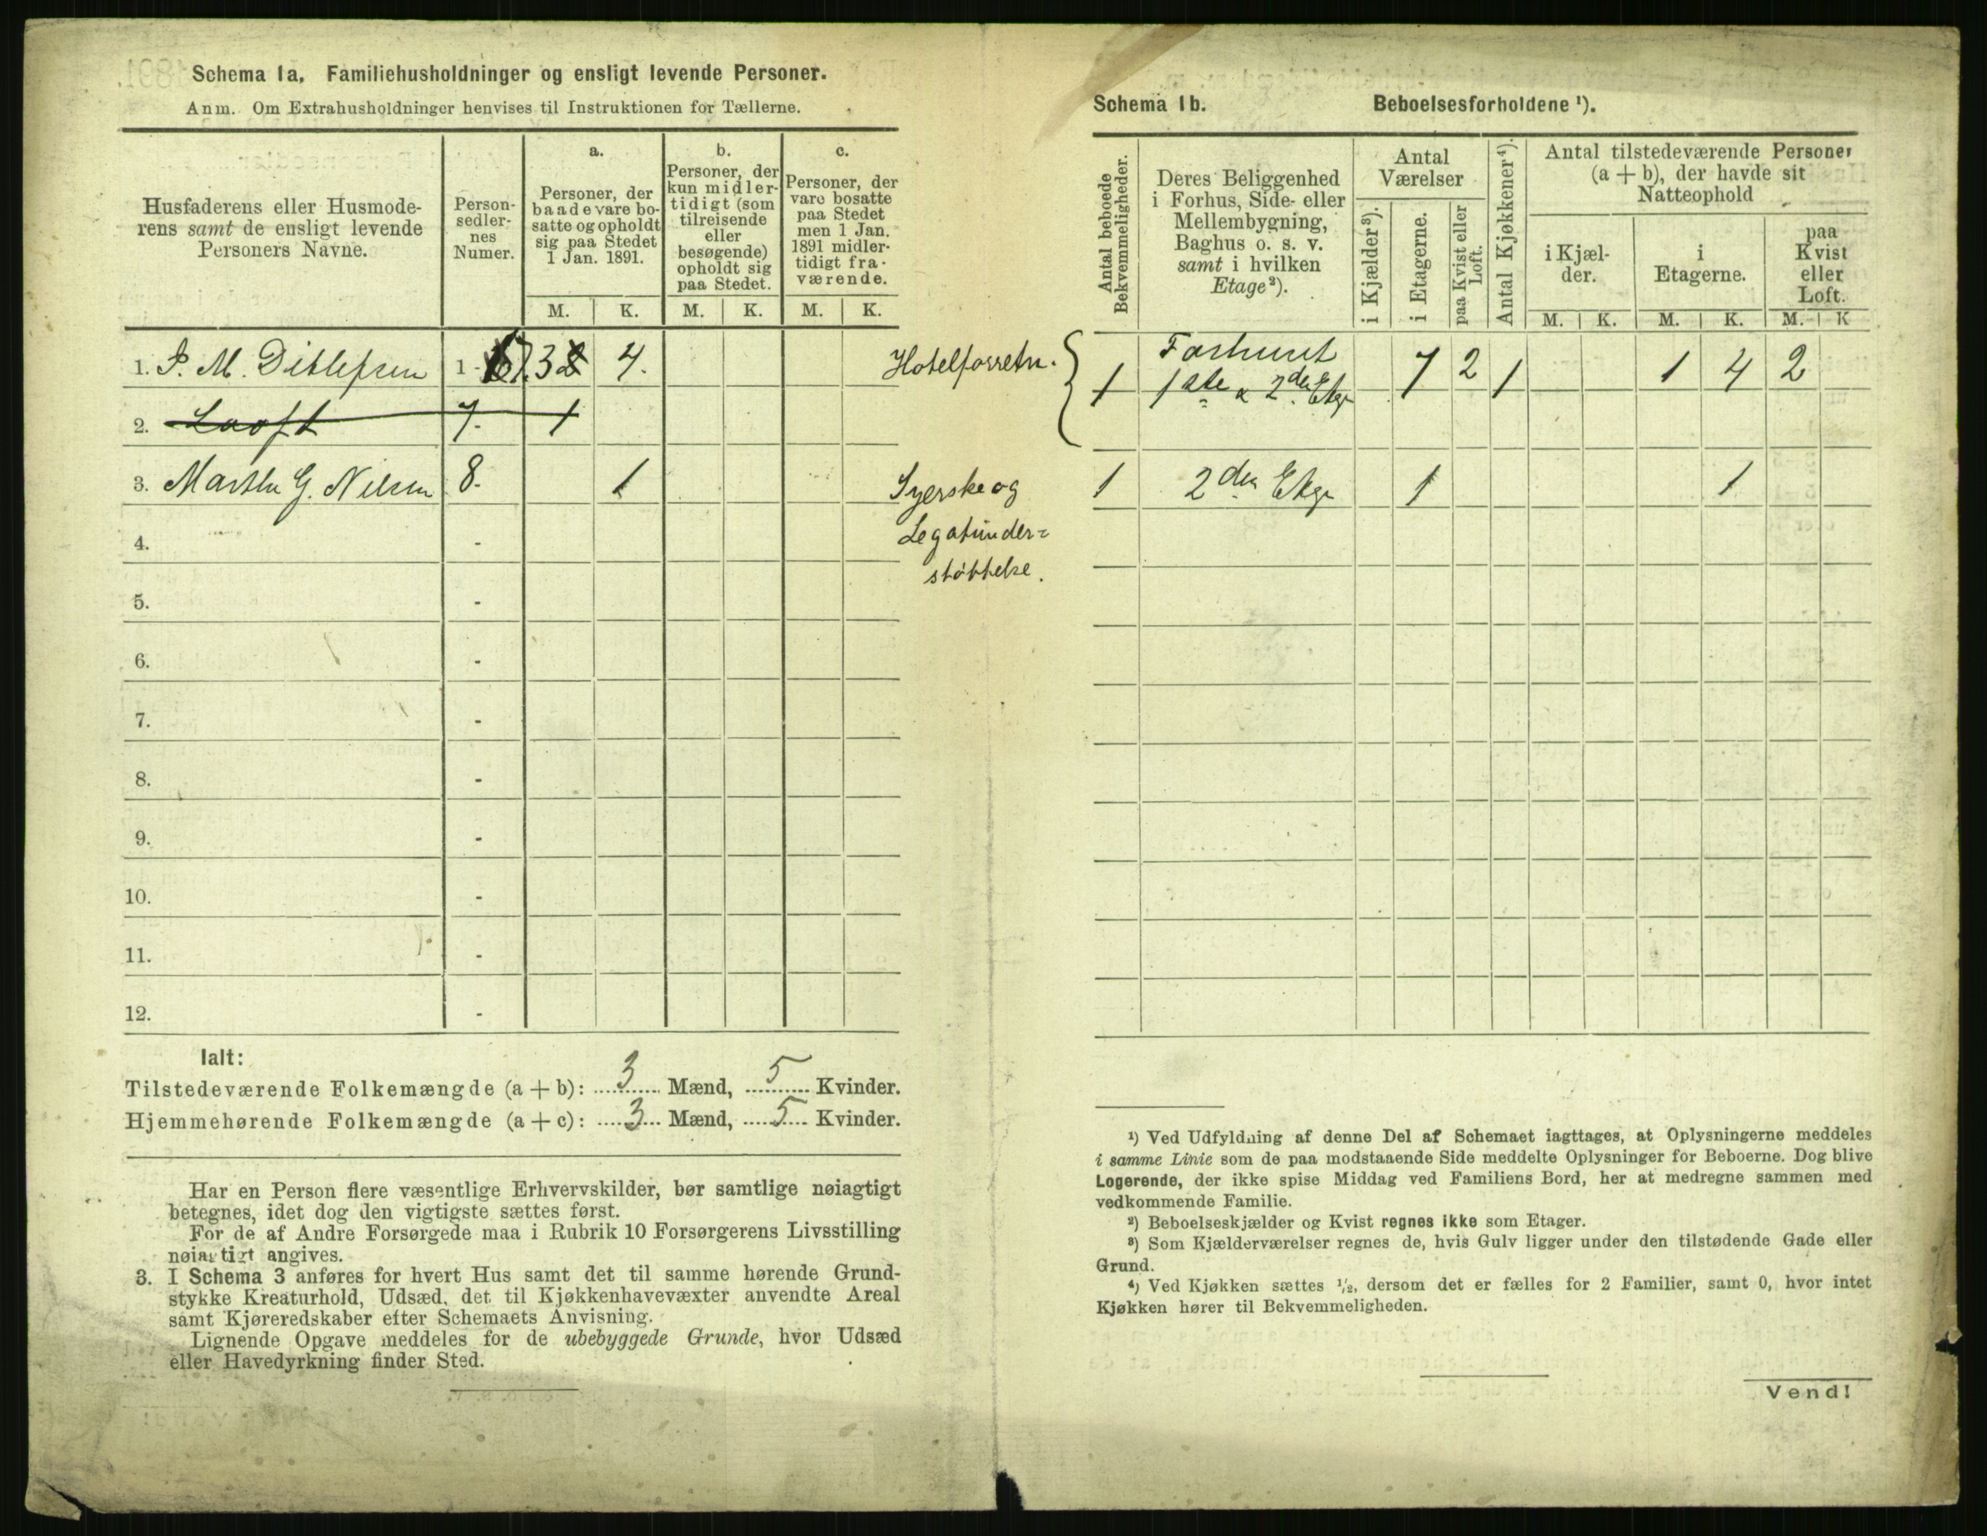 Schema 1a. Familiehusholdninger og ensligt levende Personer.
Anm. Om Extrahusholdninger henvises til Instruktionen for Tællerne.
Husfaderens eller Husmode-
rens samt de ensligt levende
Personers Navne.
Person-
sedler-
nes
Numer.
a.
Personer, der
baade vare bo-
satte og opholdt
sig paa Stedet
1 Jan. 1891.
b.
Personer, der
kun midler-
tidigt (som
tilreisende
eller
besøgende)
opholdt sig
paa Stedet.
c.
Personer, der
vare bosatte
paa Stedet
men 1 Jan.
1891 midler-
tidigt fra-
værende.
M. K. M. K. M. K.
1. P. M. Ditlefsen 1 - 7. 3 4. Hotelforretn.
2. Looft 7. 1
3. Marthe G. Nilsen 8. 1 Syerske og
Legatunder=
støttelse.
4. -
5. -
6. -
7. -
8. -
9. -
10. -
11. -
12. -
Ialt:
Tilstedeværende Folkemængde (a + b): 3 Mænd, 5 Kvinder.
Hjemmehørende Folkemængde (a + c): 3 Mænd, 5 Kvinder.
Har en Person flere væsentlige Erhvervskilder, bør samtlige nøiagtigt
betegnes, idet dog den vigtigste sættes først.
For de af Andre Forsørgede maa i Rubrik 10 Forsørgerens Livsstilling
nøiagtigt angives.
3. I Schema 3 anføres for hvert Hus samt det til samme hørende Grund-
stykke Kreaturhold, Udsæd, det til Kjøkkenhavevæxter anvendte Areal
samt Kjøreredskaber efter Schemaets Anvisning.
Lignende Opgave meddeles for de ubebyggede Grunde, hvor Udsæd
eller Havedyrkning finder Sted.
Schema 1b. Beboelsesforholdene ¹).
Antal beboede
Bekvemmeligheder.
Deres Beliggenhed
i Forhus, Side- eller
Mellembygning,
Baghus o. s. v.
samt i hvilken
Etage²).
Antal
Værelser
i Kjælder³).
i Etagerne.
paa Kvist eller
Loft.
Antal Kjøkkener⁴).
Antal tilstedeværende Personer
(a + b), der havde sit
Natteophold
i Kjæl-
der.
i
Etagerne.
paa
Kvist
eller
Loft.
M. K. M. K. M. K
Forhuset
1 1ste & 2den Etge 7 2 1 1 4 2
1 2den Etge 1 1
¹) Ved Udfyldning af denne Del af Schemaet iagttages, at Oplysningerne meddeles
i samme Linie som de paa modstaaende Side meddelte Oplysninger for Beboerne. Dog blive
Logerende, der ikke spise Middag ved Familiens Bord, her at medregne sammen med
vedkommende Familie.
²) Beboelseskjælder og Kvist regnes ikke som Etager.
³) Som Kjælderværelser regnes de, hvis Gulv ligger under den tilstødende Gade eller
Grund.
⁴) Ved Kjøkken sættes ¹/₂, dersom det er fælles for 2 Familier, samt 0, hvor intet
Kjøkken hører til Bekvemmeligheden.
Vend!